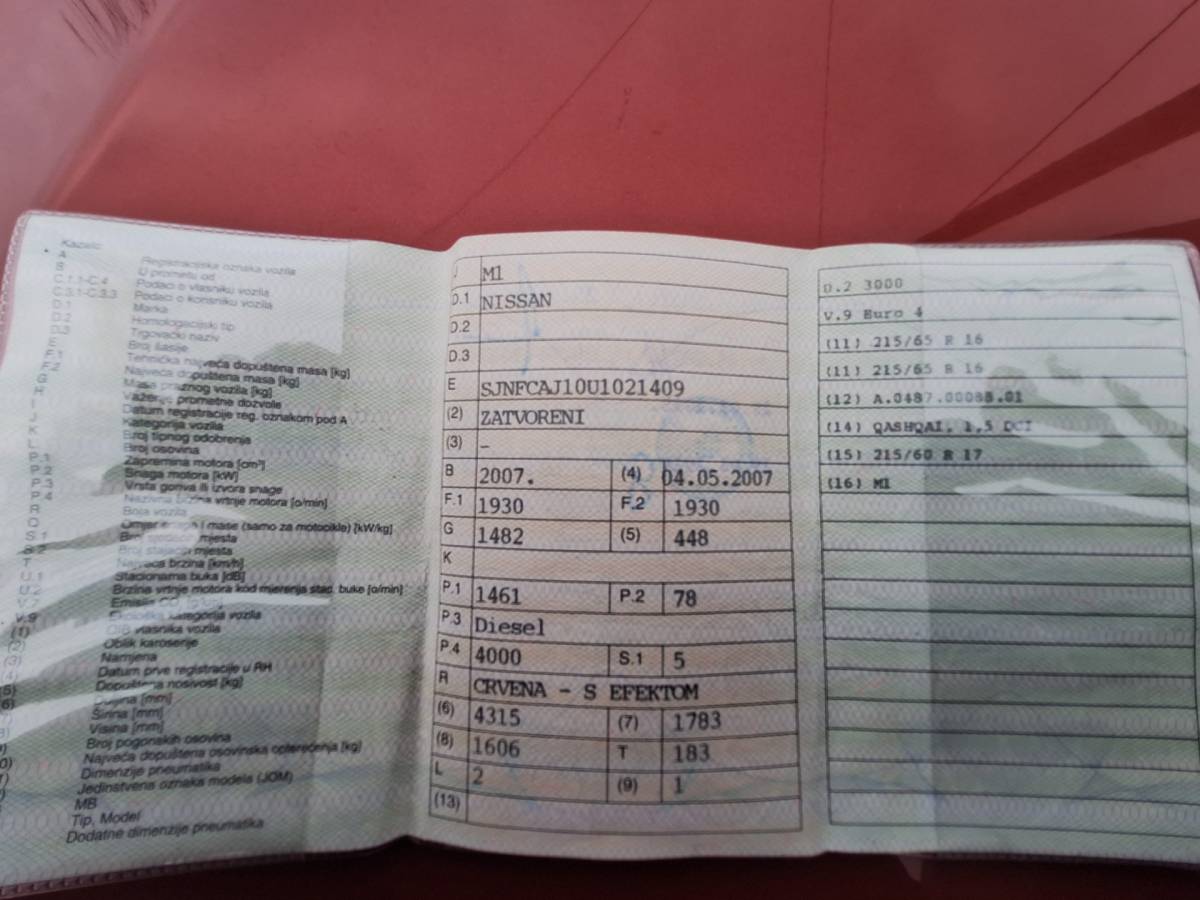 Kazalo:
A Registracijska oznaka vozila
B U prometu od
C.1.1-C.4 Podaci o vlasniku vozila
C.3.1-C.3.3 Podaci o korisniku vozila
D.1 Marka
D.2 Homologacijski tip
D.3 Trgovački naziv
E Broj šasije
F.1 Tehnička najveća dopuštena masa [kg]
F.2 Najveća dopuštena masa [kg]
G Masa praznog vozila [kg]
H Važenje prometne dozvole
I Datum registracije reg. oznakom pod A
J Kategorija vozila
K Broj tipnog odobrenja
L Broj osovina
P.1 Zapremina motora [cm³]
P.2 Snaga motora [kW]
P.3 Vrsta goriva ili izvora snage
P.4 Nazivna brzina vrtnje motora [o/min]
R Boja vozila
Q Omjer snage i mase (samo za motocikle) [kW/kg]
S.1 Broj mjesta
S.2 Broj stajaćih mjesta
T Najveća brzina [km/h]
U.1 Stacionarna buka [dB]
U.2 Brzina vrtnje motora kod mjerenja stac. buke [o/min]
V.7 Emisija CO
V.9 Ekološka kategorija vozila
(1) vlasnika vozila
(2) Oblik karoserije
(3) Namjena
(4) Datum prve registracije u RH
(5) Dopuštena nosivost [kg]
[mm]
Širina [mm]
Visina [mm]
Broj pogonskih osovina
Najveća dopuštena osovinska opterećenja [kg]
Dimenzije pneumatika
Jedinstvena oznaka modela (JOM)
MB
Tip, Model
Dodatne dimenzije pneumatika
J M1
D.1 NISSAN
D.2
D.3
E SJNFCAJ10U1021409
(2) ZATVORENI
(3) –
B 2007. (4) 04.05.2007
F.1 1930 F.2 1930
G 1482 (5) 448
K
P.1 1461 P.2 78
P.3 Diesel
P.4 4000 S.1 5
R CRVENA - S EFEKTOM
(6) 4315 (7) 1783
(8) 1606 T 183
L 2 (9) 1
(13)
D.2 3000
V.9 Euro 4
(11) 215/65 R 16
(11) 215/65 R 16
(12) A.0487.00088.01
(14) QASHQAI, 1,5 DCI
(15) 215/60 R 17
(16) M1